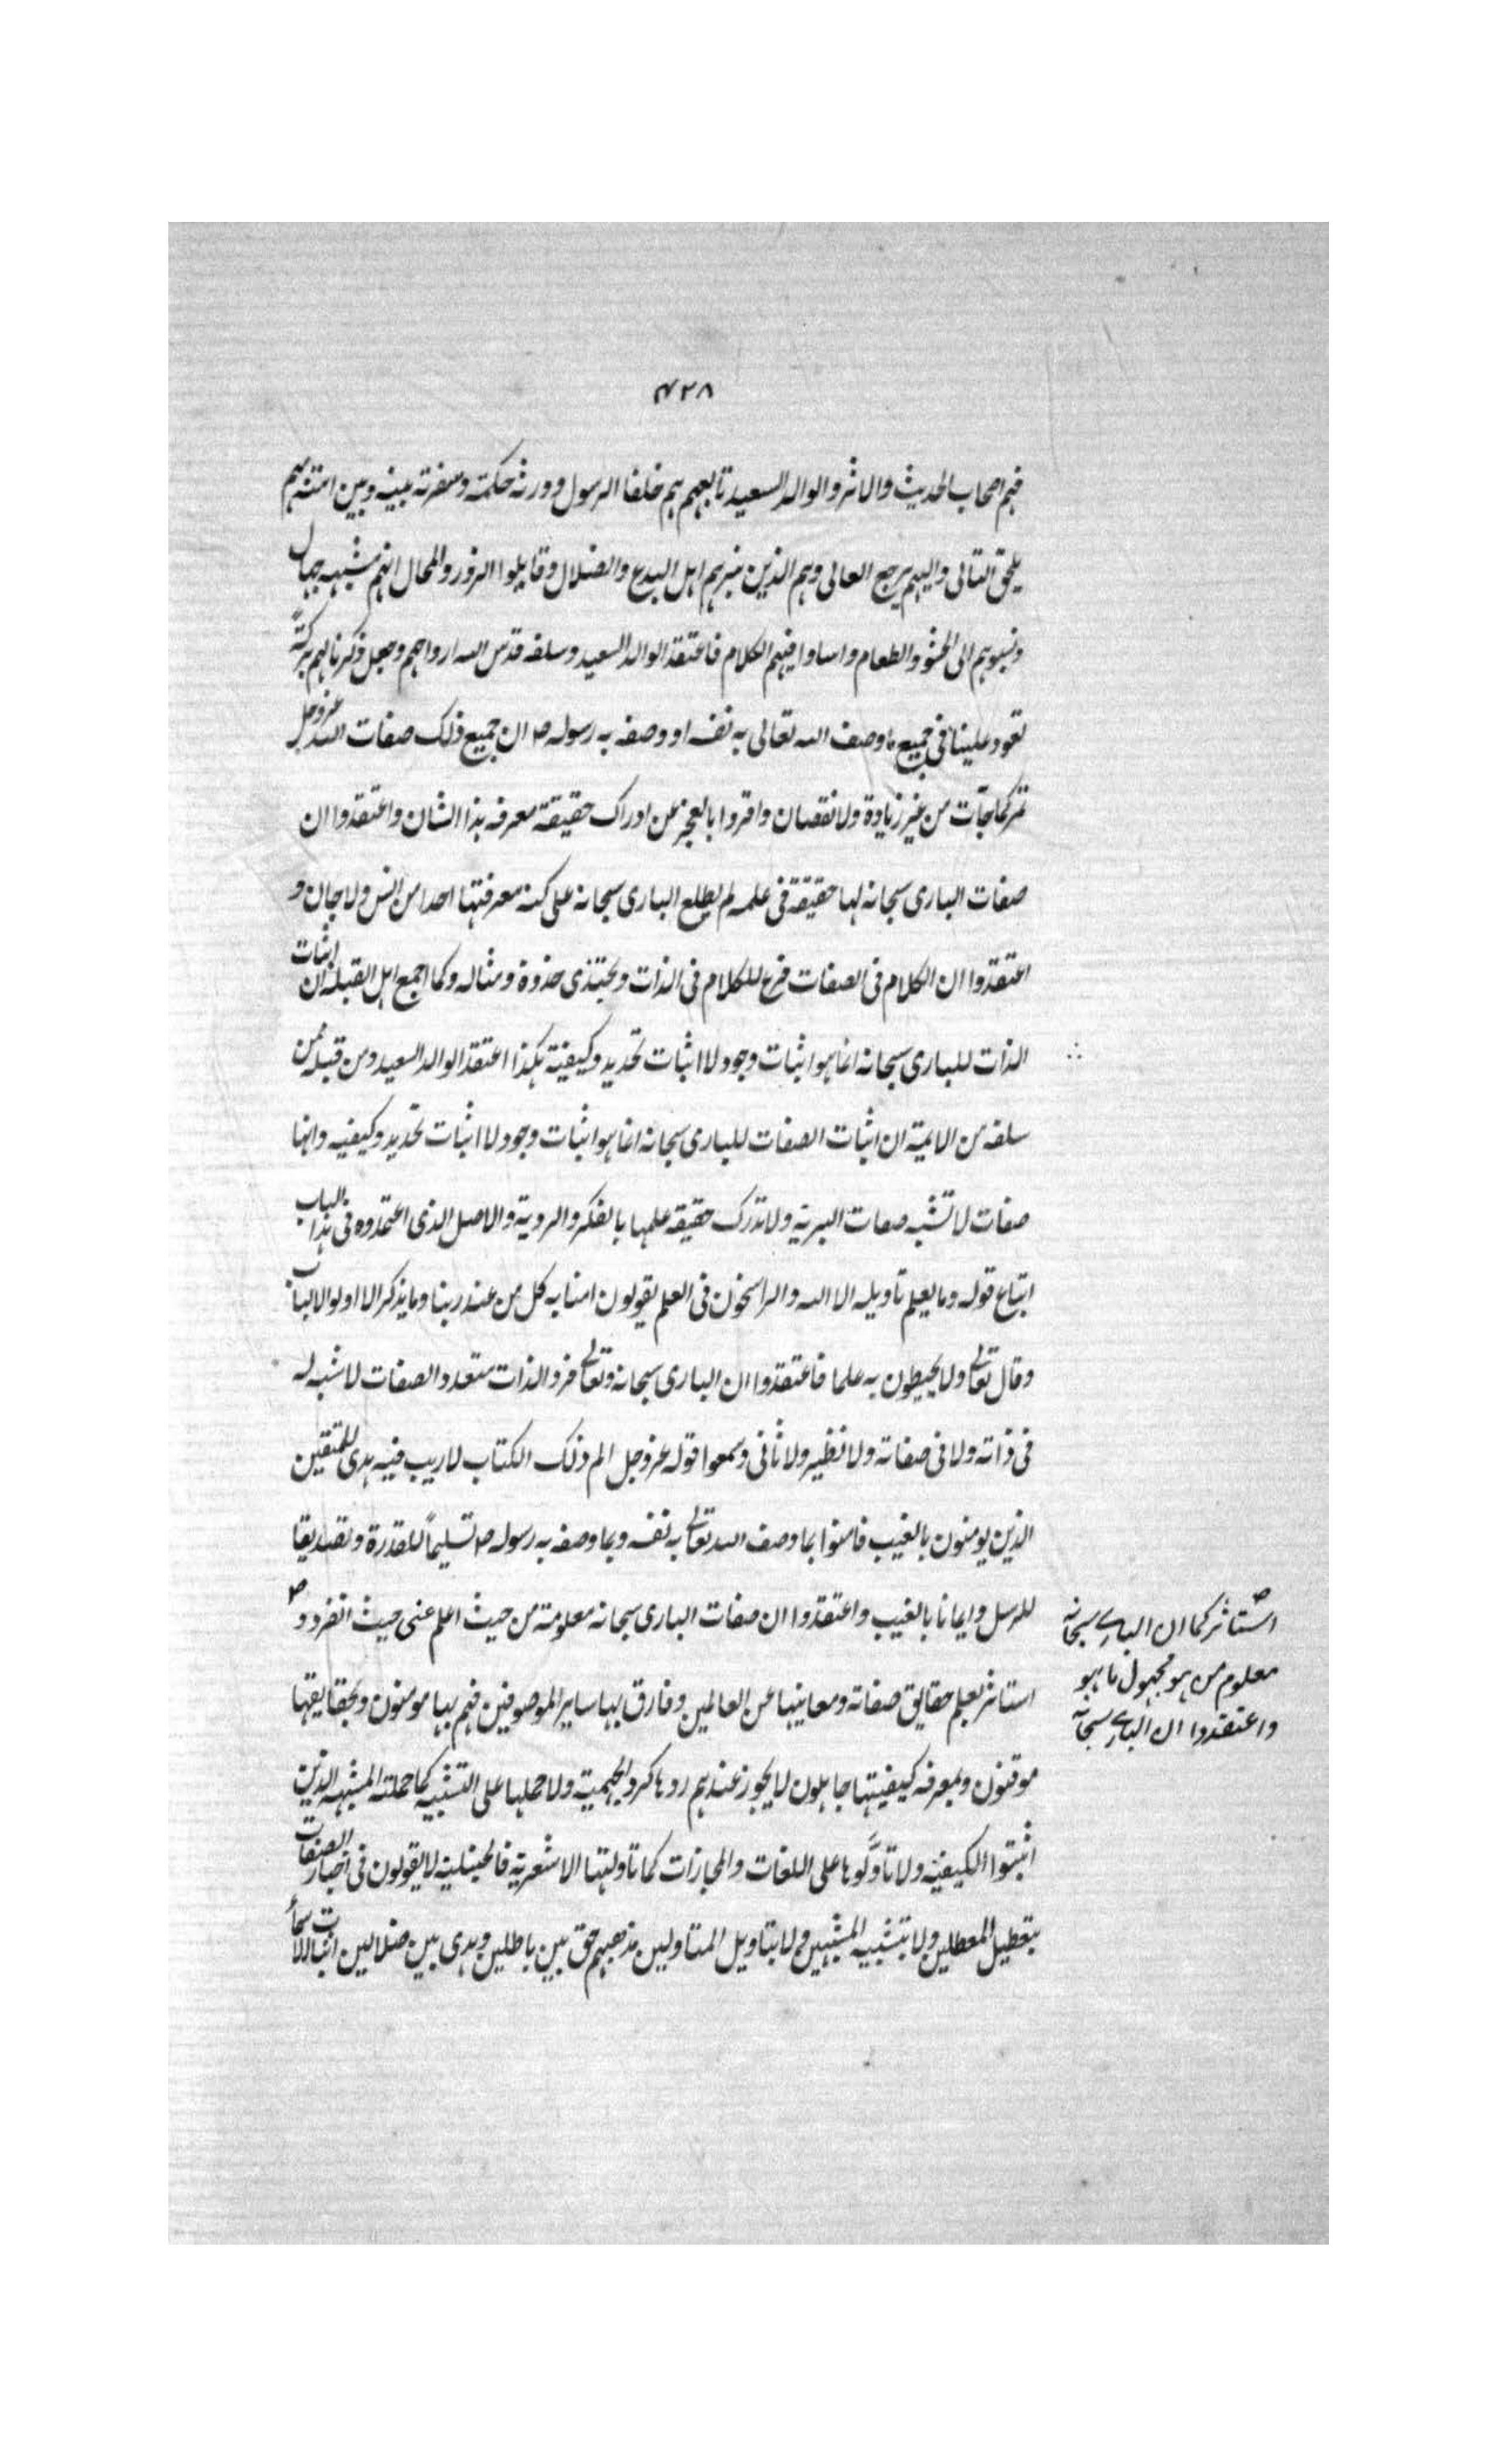 ۴۲۸
فهم اصحاب الحديث والاثر والوالد السعيد تابعهم هم خلفا الرسول وورثه حكمته وسفرته بينه وبين امته بهم
يلحق التالى واليهم يرجع العالى وهم الذين نبزهم اهل البدع والضلال وقايلوا الزور والمحال انهم مشبهه جهال
ونسبوهم الى الحشو والطغام واساوا فيهم الكلام فاعتقد الوالد السعيد وسلفه قدس الله ارواحهم وجعل ذكرنا لهم بركةً
تعود علينا فى جميع ما وصف الله تعالى به نفسه او وصفه به رسوله ص ان جميع ذلك صفات الله عز وجل
تمر كما جآت من غير زيادة ولا نقصان واقروا بالعجز عن ادراك حقيقة معرفه هذا الشان واعتقدوا ان
صفات البارى سبحانه لها حقيقة فى علمه لم يطلع البارى سبحانه على كنه معرفتها احدا من انس ولا جان و
اعتقدوا ان الكلام فى الصفات فرع للكلام فى الذات ويحتذى حذوة ومثاله وكما اجمع اهل القبله ان اثبات
الذات للبارى سبحانه انما هو اثبات وجود لا اثبات تحديد وكيفية هكذا اعتقد الوالد السعيد ومن قبله ممن
سلفه من الايمة ان اثبات الصفات للبارى سبحانه انما هو اثبات وجود لا اثبات تحديد وكيفيه وانها
صفات لا تشبه صفات البرية ولا تدرك حقيقه علمها بالفكر والروية والاصل الذى اعتمدوه فى هذا الباب
اتباع قوله وما يعلم تاويله الا الله والراسخون فى العلم يقولون امنا به كل من عند ربنا وما يذكر الا اولوا الالباب
وقال تعالى ولا يحيطون به علما فاعتقدوا ان البارى سبحانه وتعالى فرد الذات متعدد الصفات لا شبه له
فى ذاته ولا فى صفاته ولا نظير ولا ثانى وسمعوا قوله عز وجل الم ذلك الكتاب لا ريب فيه هدى للمتقين
الذين يومنون بالغيب فامنوا بما وصف الله تعالى به نفسه وبما وصفه به رسوله ص تسليماً للقدرة وتصديقا
للرسل وايمانا بالغيب واعتقدوا ان صفات البارى سبحانه معلومة من حيث اعلم غنى حيث انفرد و
استاثر كما ان البارى سبحانه
معلوم من هو مجهول ما هو
واعتقدوا ان البارى سبحانه
استاثر بعلم حقايق صفاته ومعاينها عن العالمين وفارق بها ساير الموصوفين فهم بها مومنون وبحقايقها
موقنون وبمعرفه كيفيتها جاهلون لا يجوز عندهم ردها كرد الجهمية ولا حملها على التشبيه كما حملته المشبهه الذين
اثبتوا الكيفية ولا تاوَّلوها على اللغات والمجازات كما تاولتها الاشعرية فالحنبلية لا يقولون فى اخبار الصفات
بتعطيل المعطلين ولا بتشبيه المشبهين ولا بتاويل المتاولين مذهبهم حق بين باطلين وهدى بين ضلالين اثبات الاسما